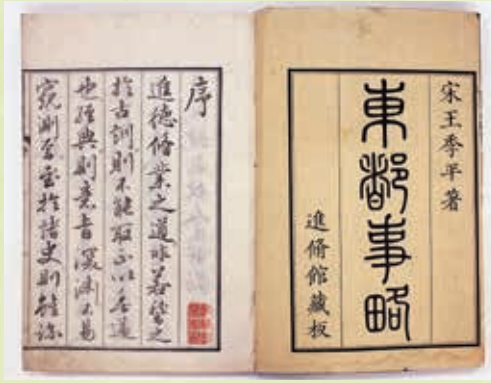 宋王季平著
東都事略
進脩館藏板
序
進德脩業之道非之
於古訓則不能取正以
也經典則意旨深淵不易
窺測於諸史則雖